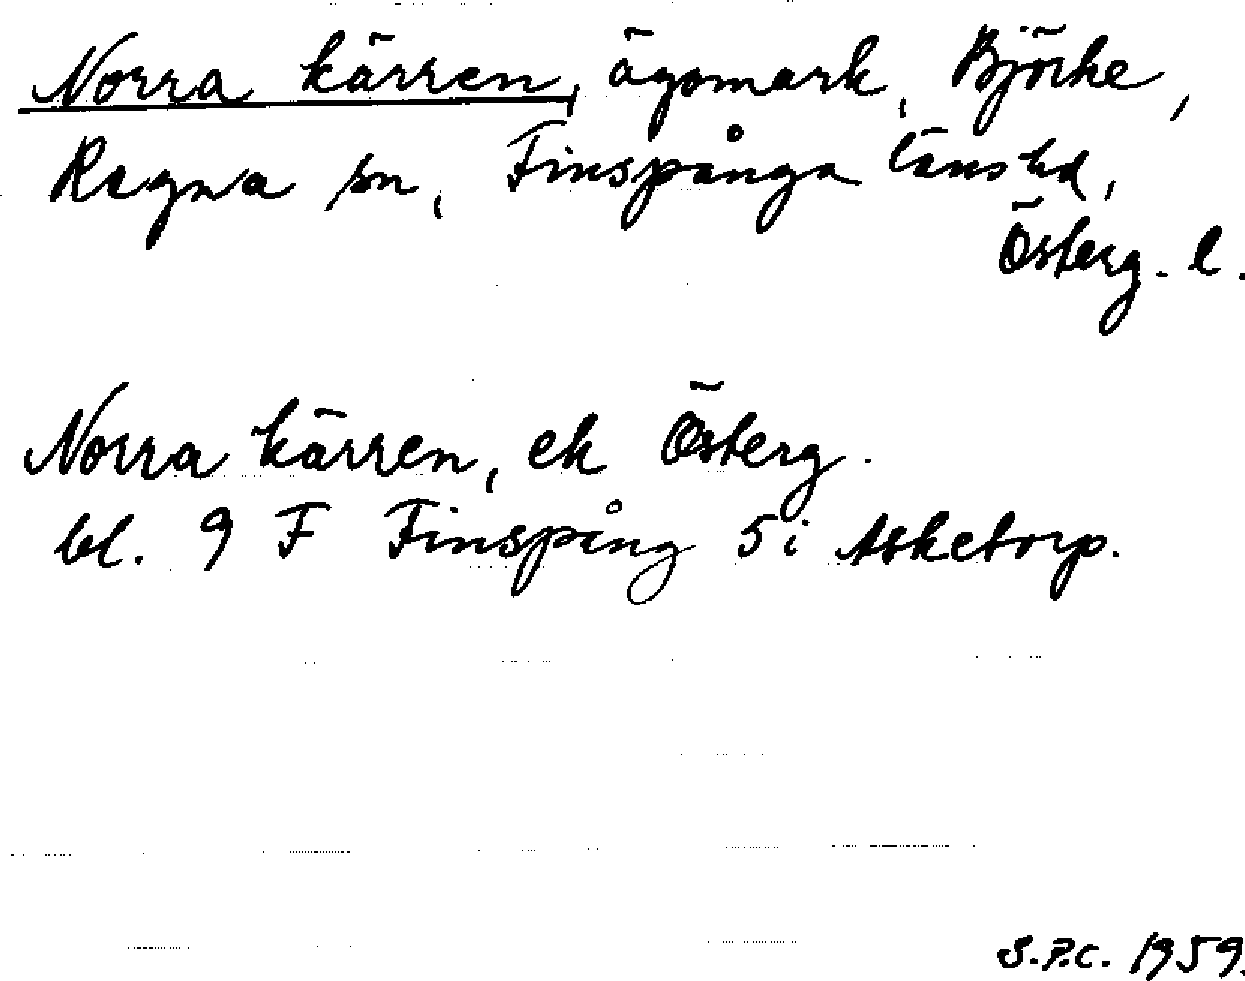 Norra kärren, ägomark, Björke,
Regna sn, Finspånga länshd,
Österg. l.
Norra kärren, ek Österg.
bl. 9 F Finspång 5 i Asketorp.
S.P.C. 1959.